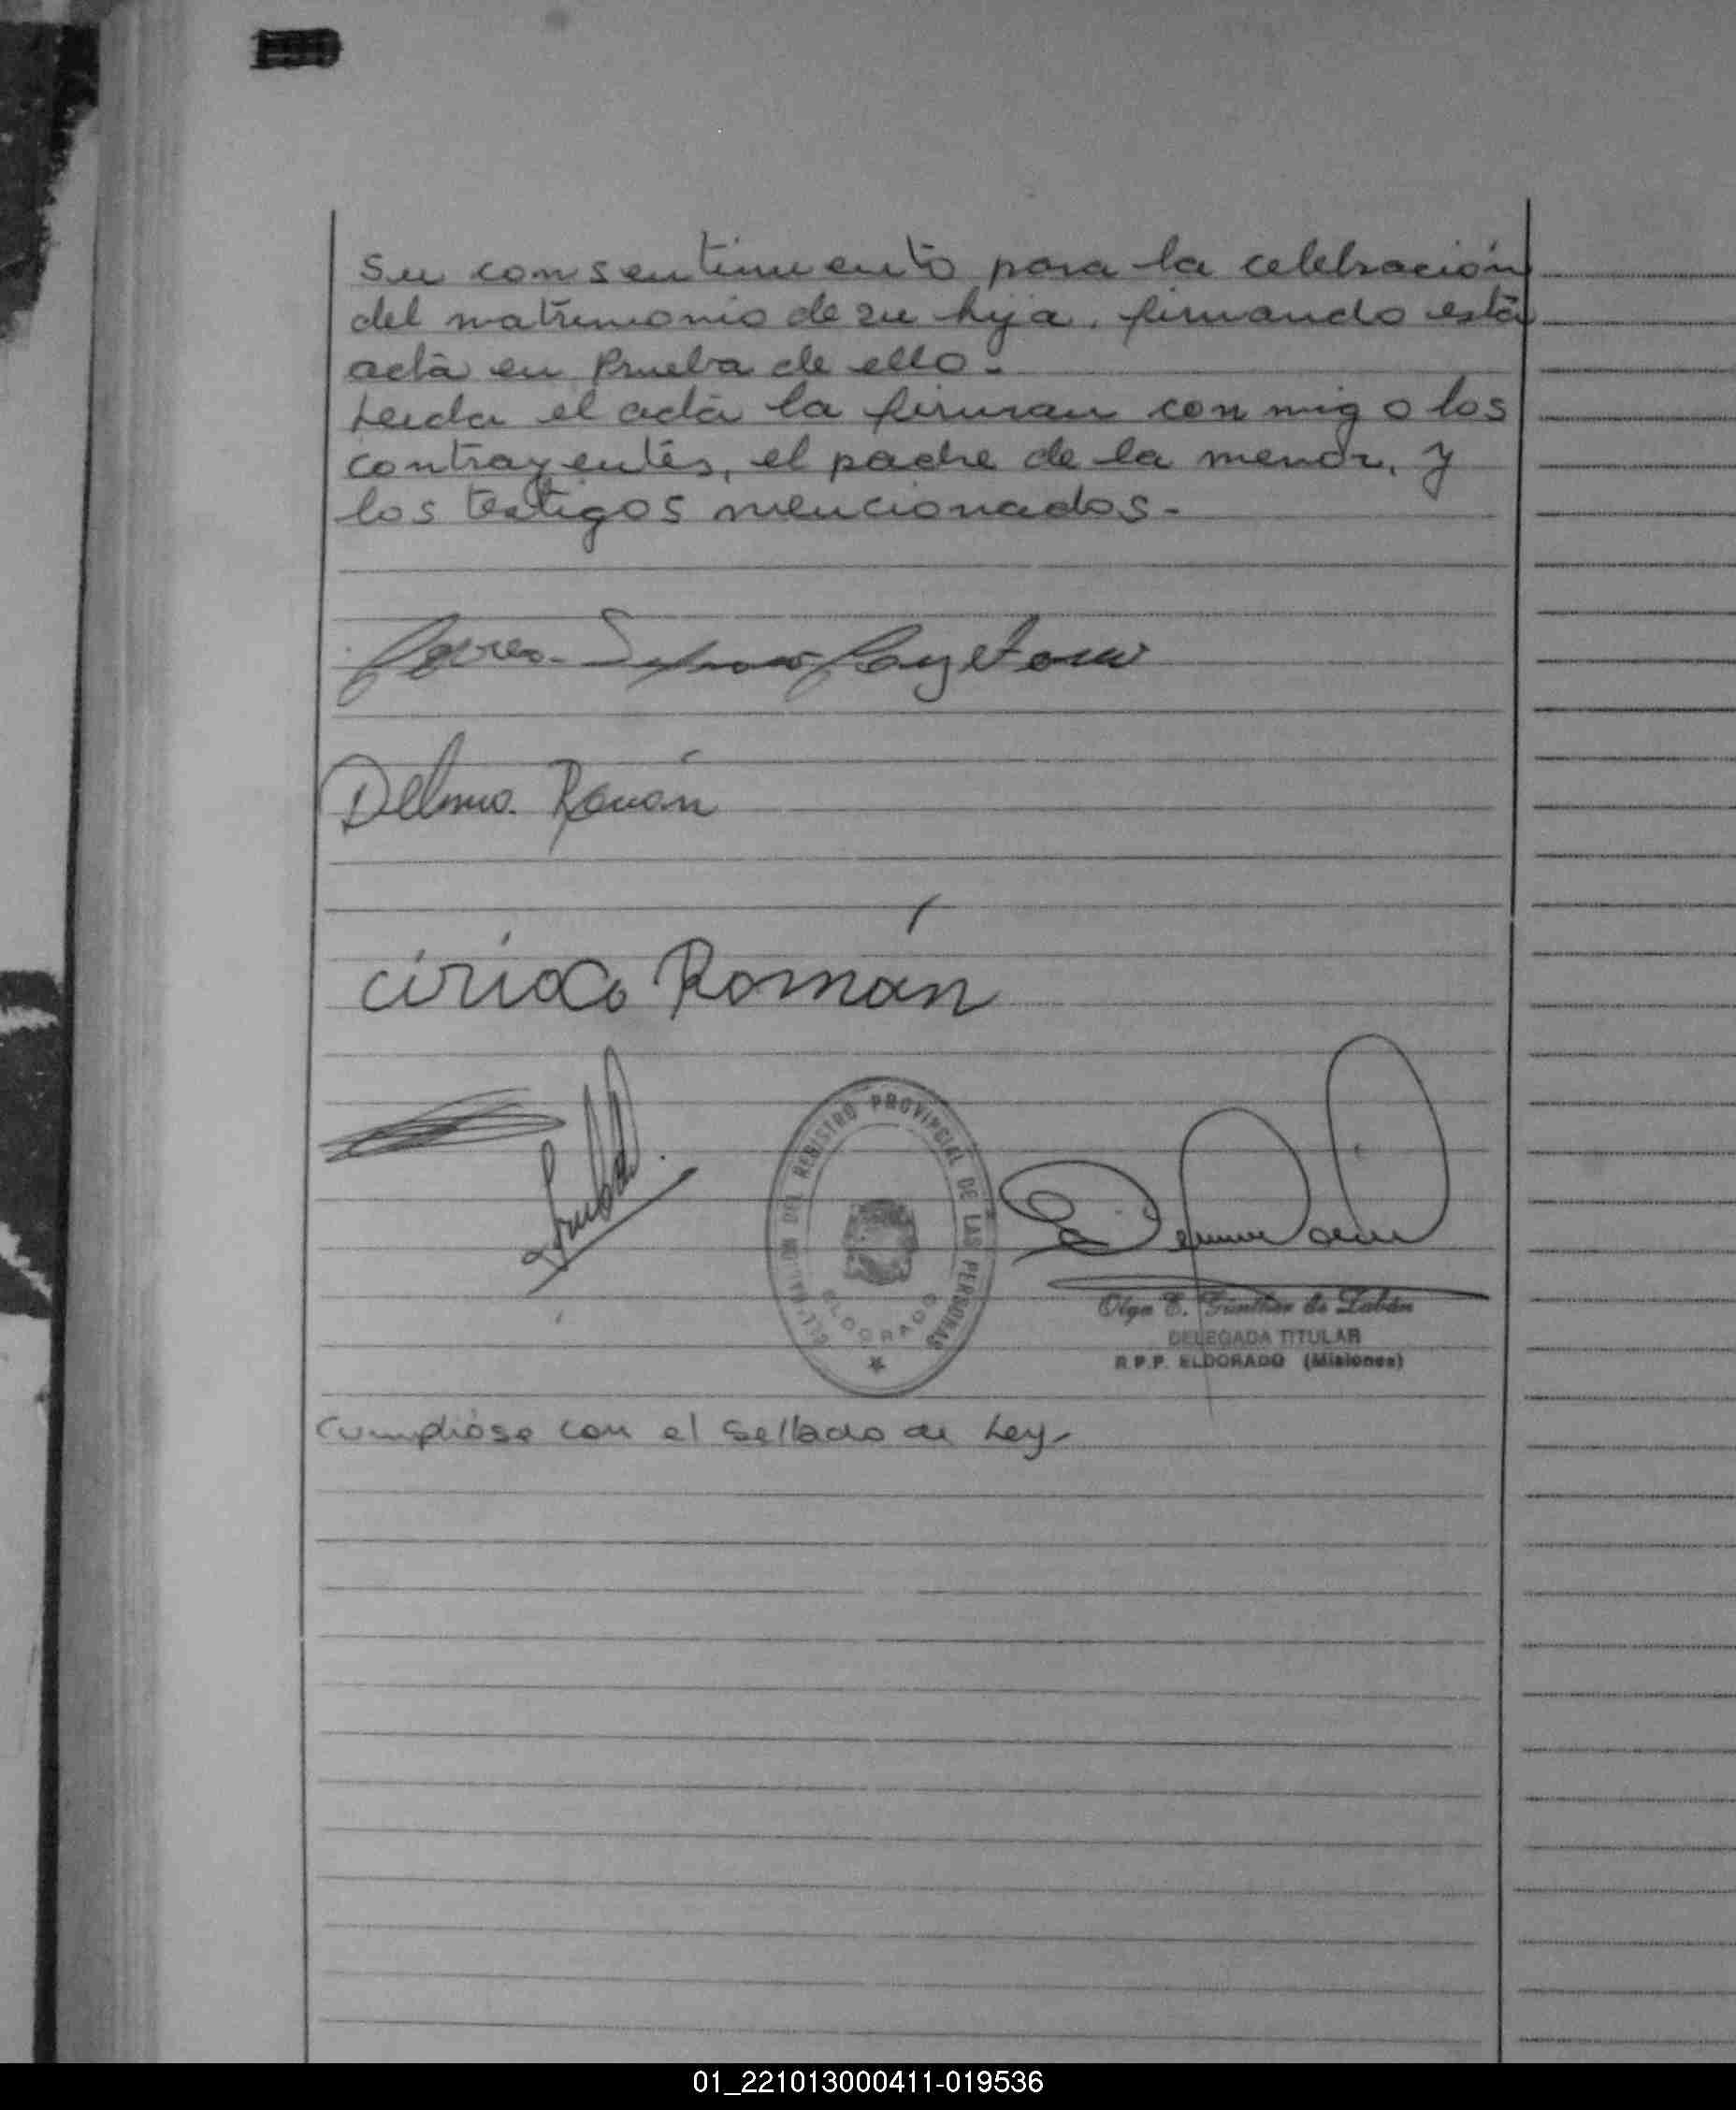 su consentimiento para la celebración
del matrimonio de su hija, firmando esta
acta en Prueba de ello.-
Leida el acta la firman conmigo los
contrayentes, el padre de la menor, y
los testigos mencionados.-
Cayetano
Delma Román
ciriaco Román
DEL REGISTRO PROVINCIAL DE LAS PERSONAS
ELDORADO
Olga E. Günther de Labán
DELEGADA TITULAR
R.P.P. ELDORADO (Misiones)
Cumplióse con el Sellado de Ley-
01_221013000411-019536